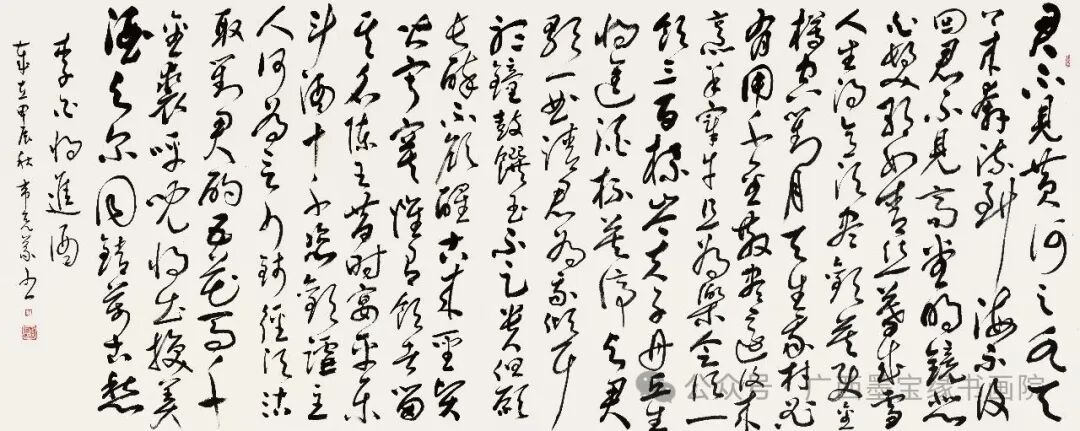 君不見黃河之水天
上來奔流到海不復
回君不見高堂明鏡悲
白髮朝如青絲暮成雪
人生得意須盡歡莫使金
樽空對月天生我材必
有用千金散盡還復來
烹羊宰牛且為樂會須一
飲三百杯岑夫子丹丘生
將進酒杯莫停與君
歌一曲請君為我傾耳
聽鐘鼓饌玉不足貴但願
長醉不願醒古來聖賢
皆寂寞惟有飲者留
其名陳王昔時宴平樂
斗酒十千恣歡謔主
人何為言少錢徑須沽
取對君酌五花馬千
金裘呼兒將出換美
酒與爾同銷萬古愁
李白將進酒
歲在甲辰秋韋克義書
公众号·广西墨宝缘书画院